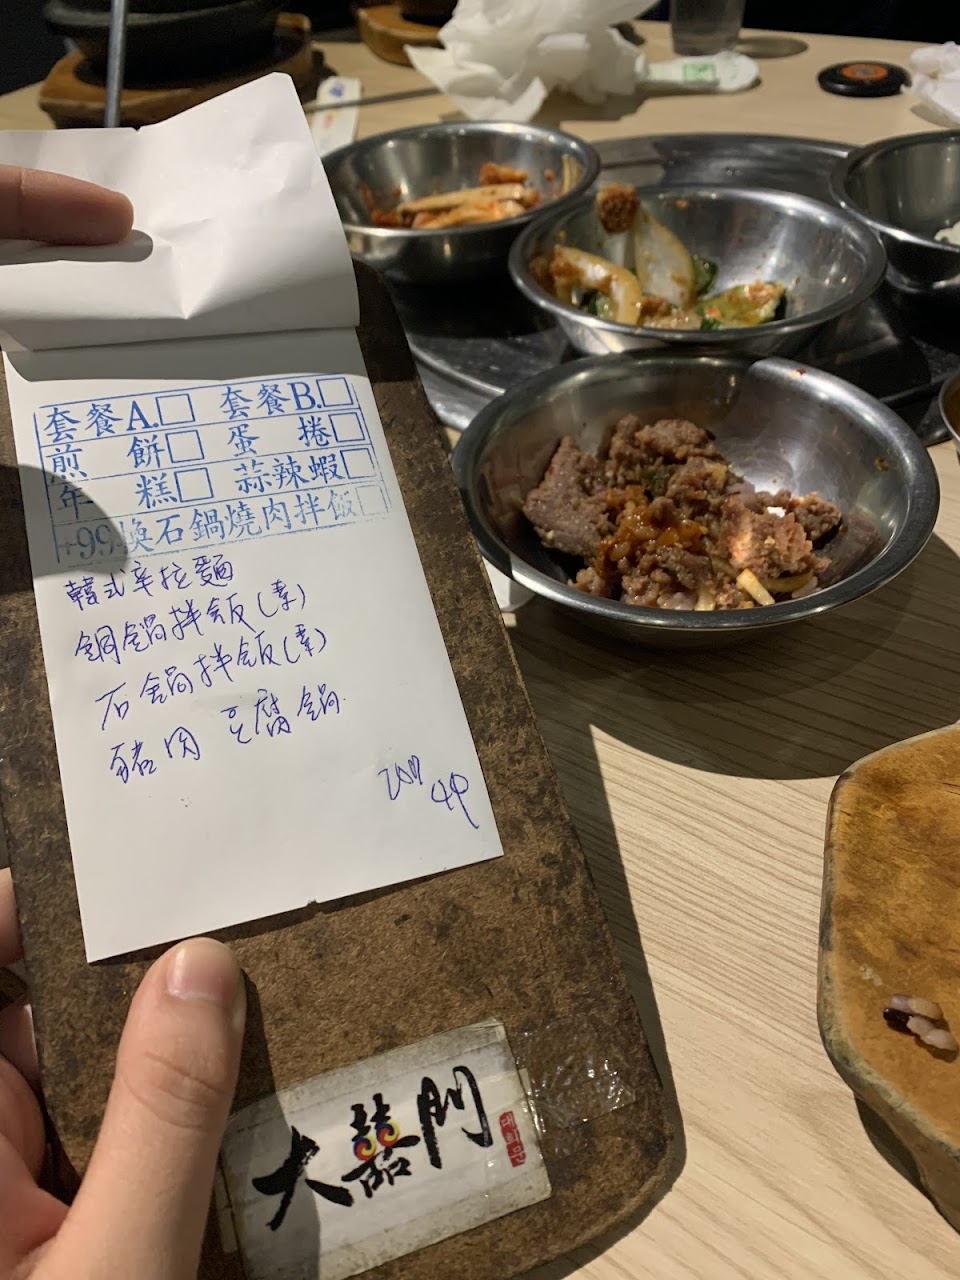 套餐A.□ 套餐B.□
煎餅□ 蛋捲□
年糕□ 蒜辣蝦□
+99換石鍋燒肉拌飯□
韓式辛拉麵
銅鍋拌飯(素)
石鍋拌飯(素)
豬肉豆腐鍋
4P
大囍門
대희문